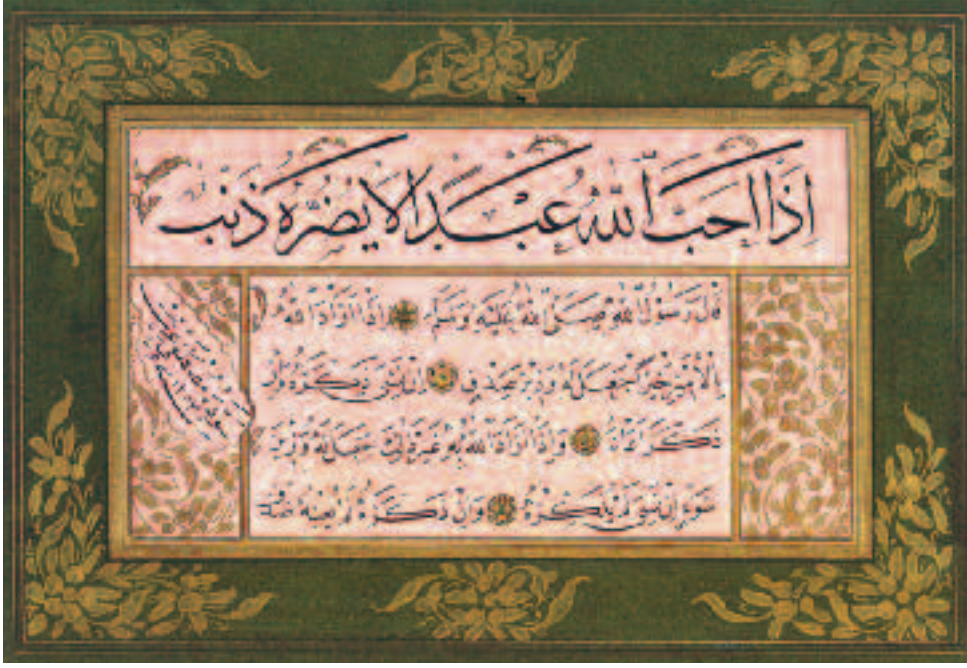 اِذَا اَحَبَّ اللّٰهُ عَبْدًا لَا يَضُرُّهُ ذَنْب
قَالَ رَسُولُ اللّٰهِ صَلَّى اللّٰهُ عَلَيْهِ وَسَلَّم اِذَا اَرَادَ اللّٰهُ
بِالْاَمِيرِ خَيْرًا جَعَلَ لَهُ وَزِيرَ صِدْقٍ اِنْ نَسِيَ ذَكَّرَهُ وَاِنْ
ذَكَرَ اَعَانَهُ وَاِذَا اَرَادَ اللّٰهُ بِهِ غَيْرَ ذٰلِكَ جَعَلَ لَهُ وَزِيرَ
سُوءٍ اِنْ نَسِيَ لَمْ يُذَكِّرْهُ وَاِنْ ذَكَرَ لَمْ يُعِنْهُ